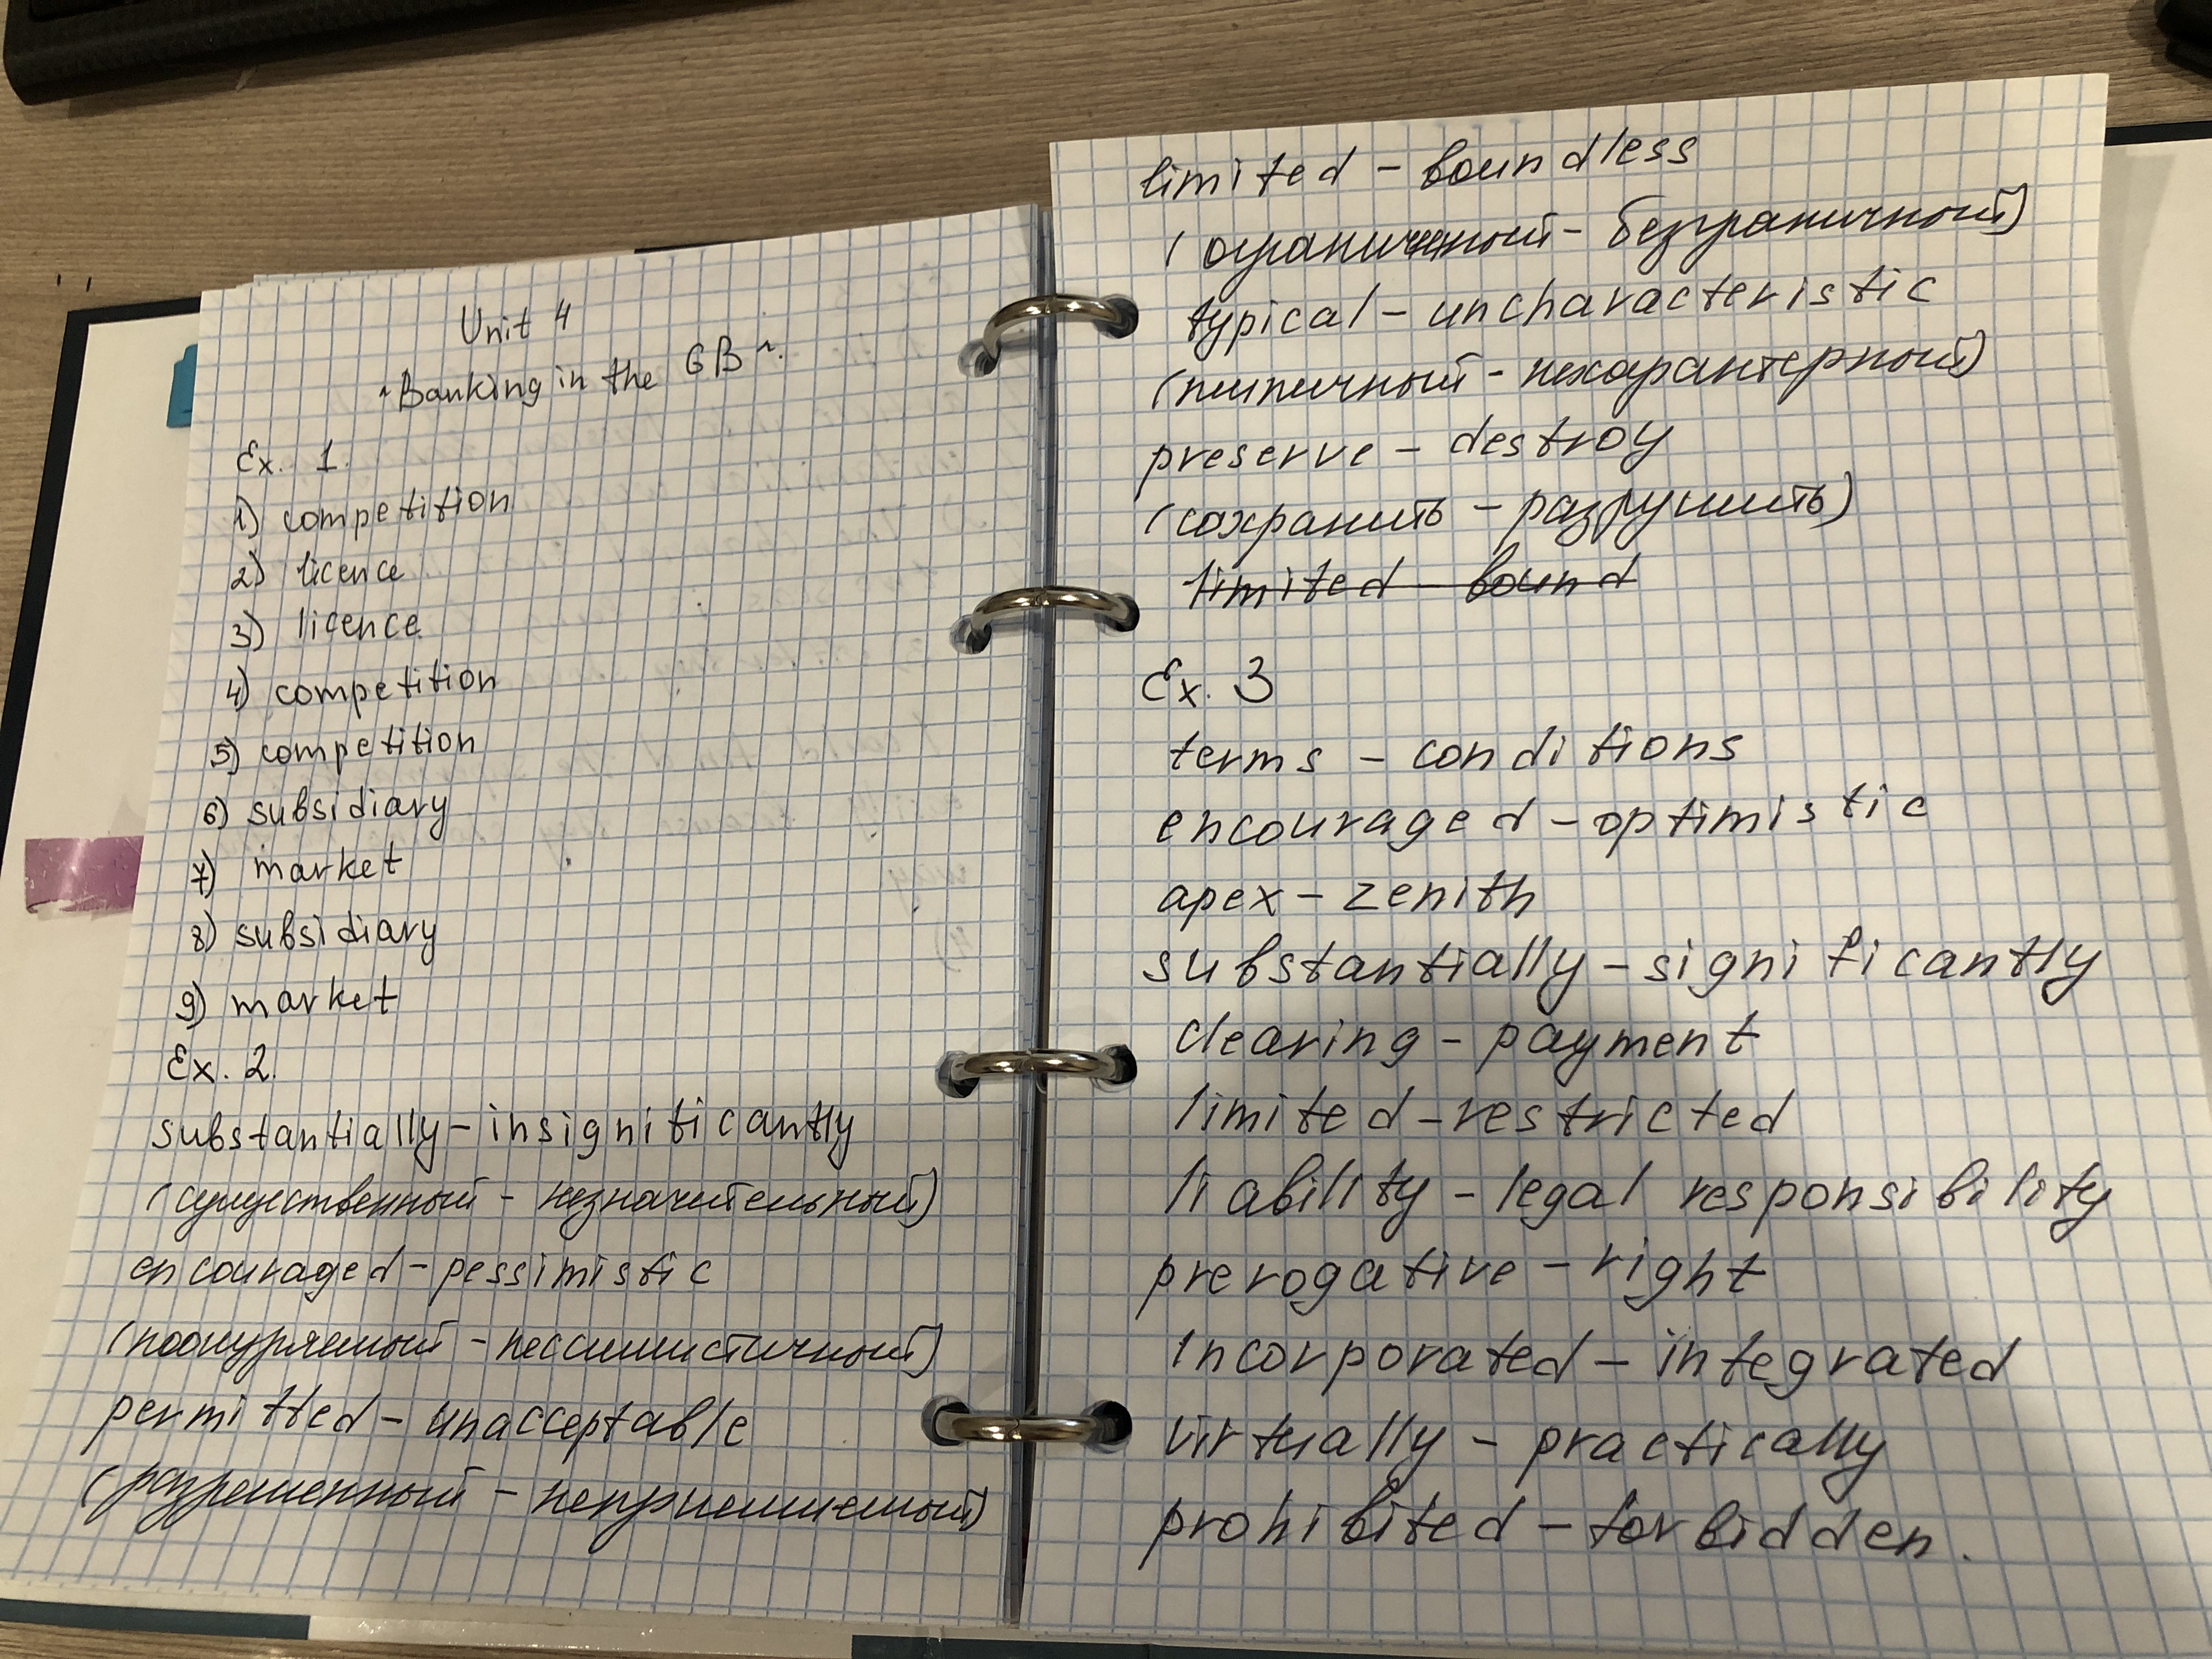 Unit 4
"Banking in the GB".
Ex. 1.
1) competition
2) licence
3) licence
4) competition
5) competition
6) subsidiary
7) market
8) subsidiary
9) market
Ex. 2.
substantially - insignificantly
(существенный - незначительный)
encouraged - pessimistic
(поощуряемый - пессимистичный)
permitted - unacceptable
(разрешенный - неприемлемый)
limited - boundless
(ограниченный - безграничный)
typical - uncharacteristic
(типичный - нехарактерный)
preserve - destroy
(сохранить - разрушить)
limited - bound
Ex. 3
terms - conditions
encouraged - optimistic
apex - zenith
substantially - significantly
clearing - payment
limited - restricted
liability - legal responsibility
prerogative - right
incorporated - integrated
virtually - practically
prohibited - forbidden.